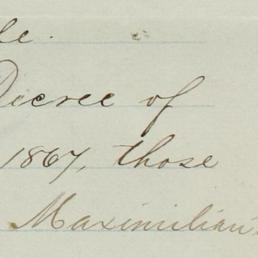 Decree of
1867, those
Maximilian